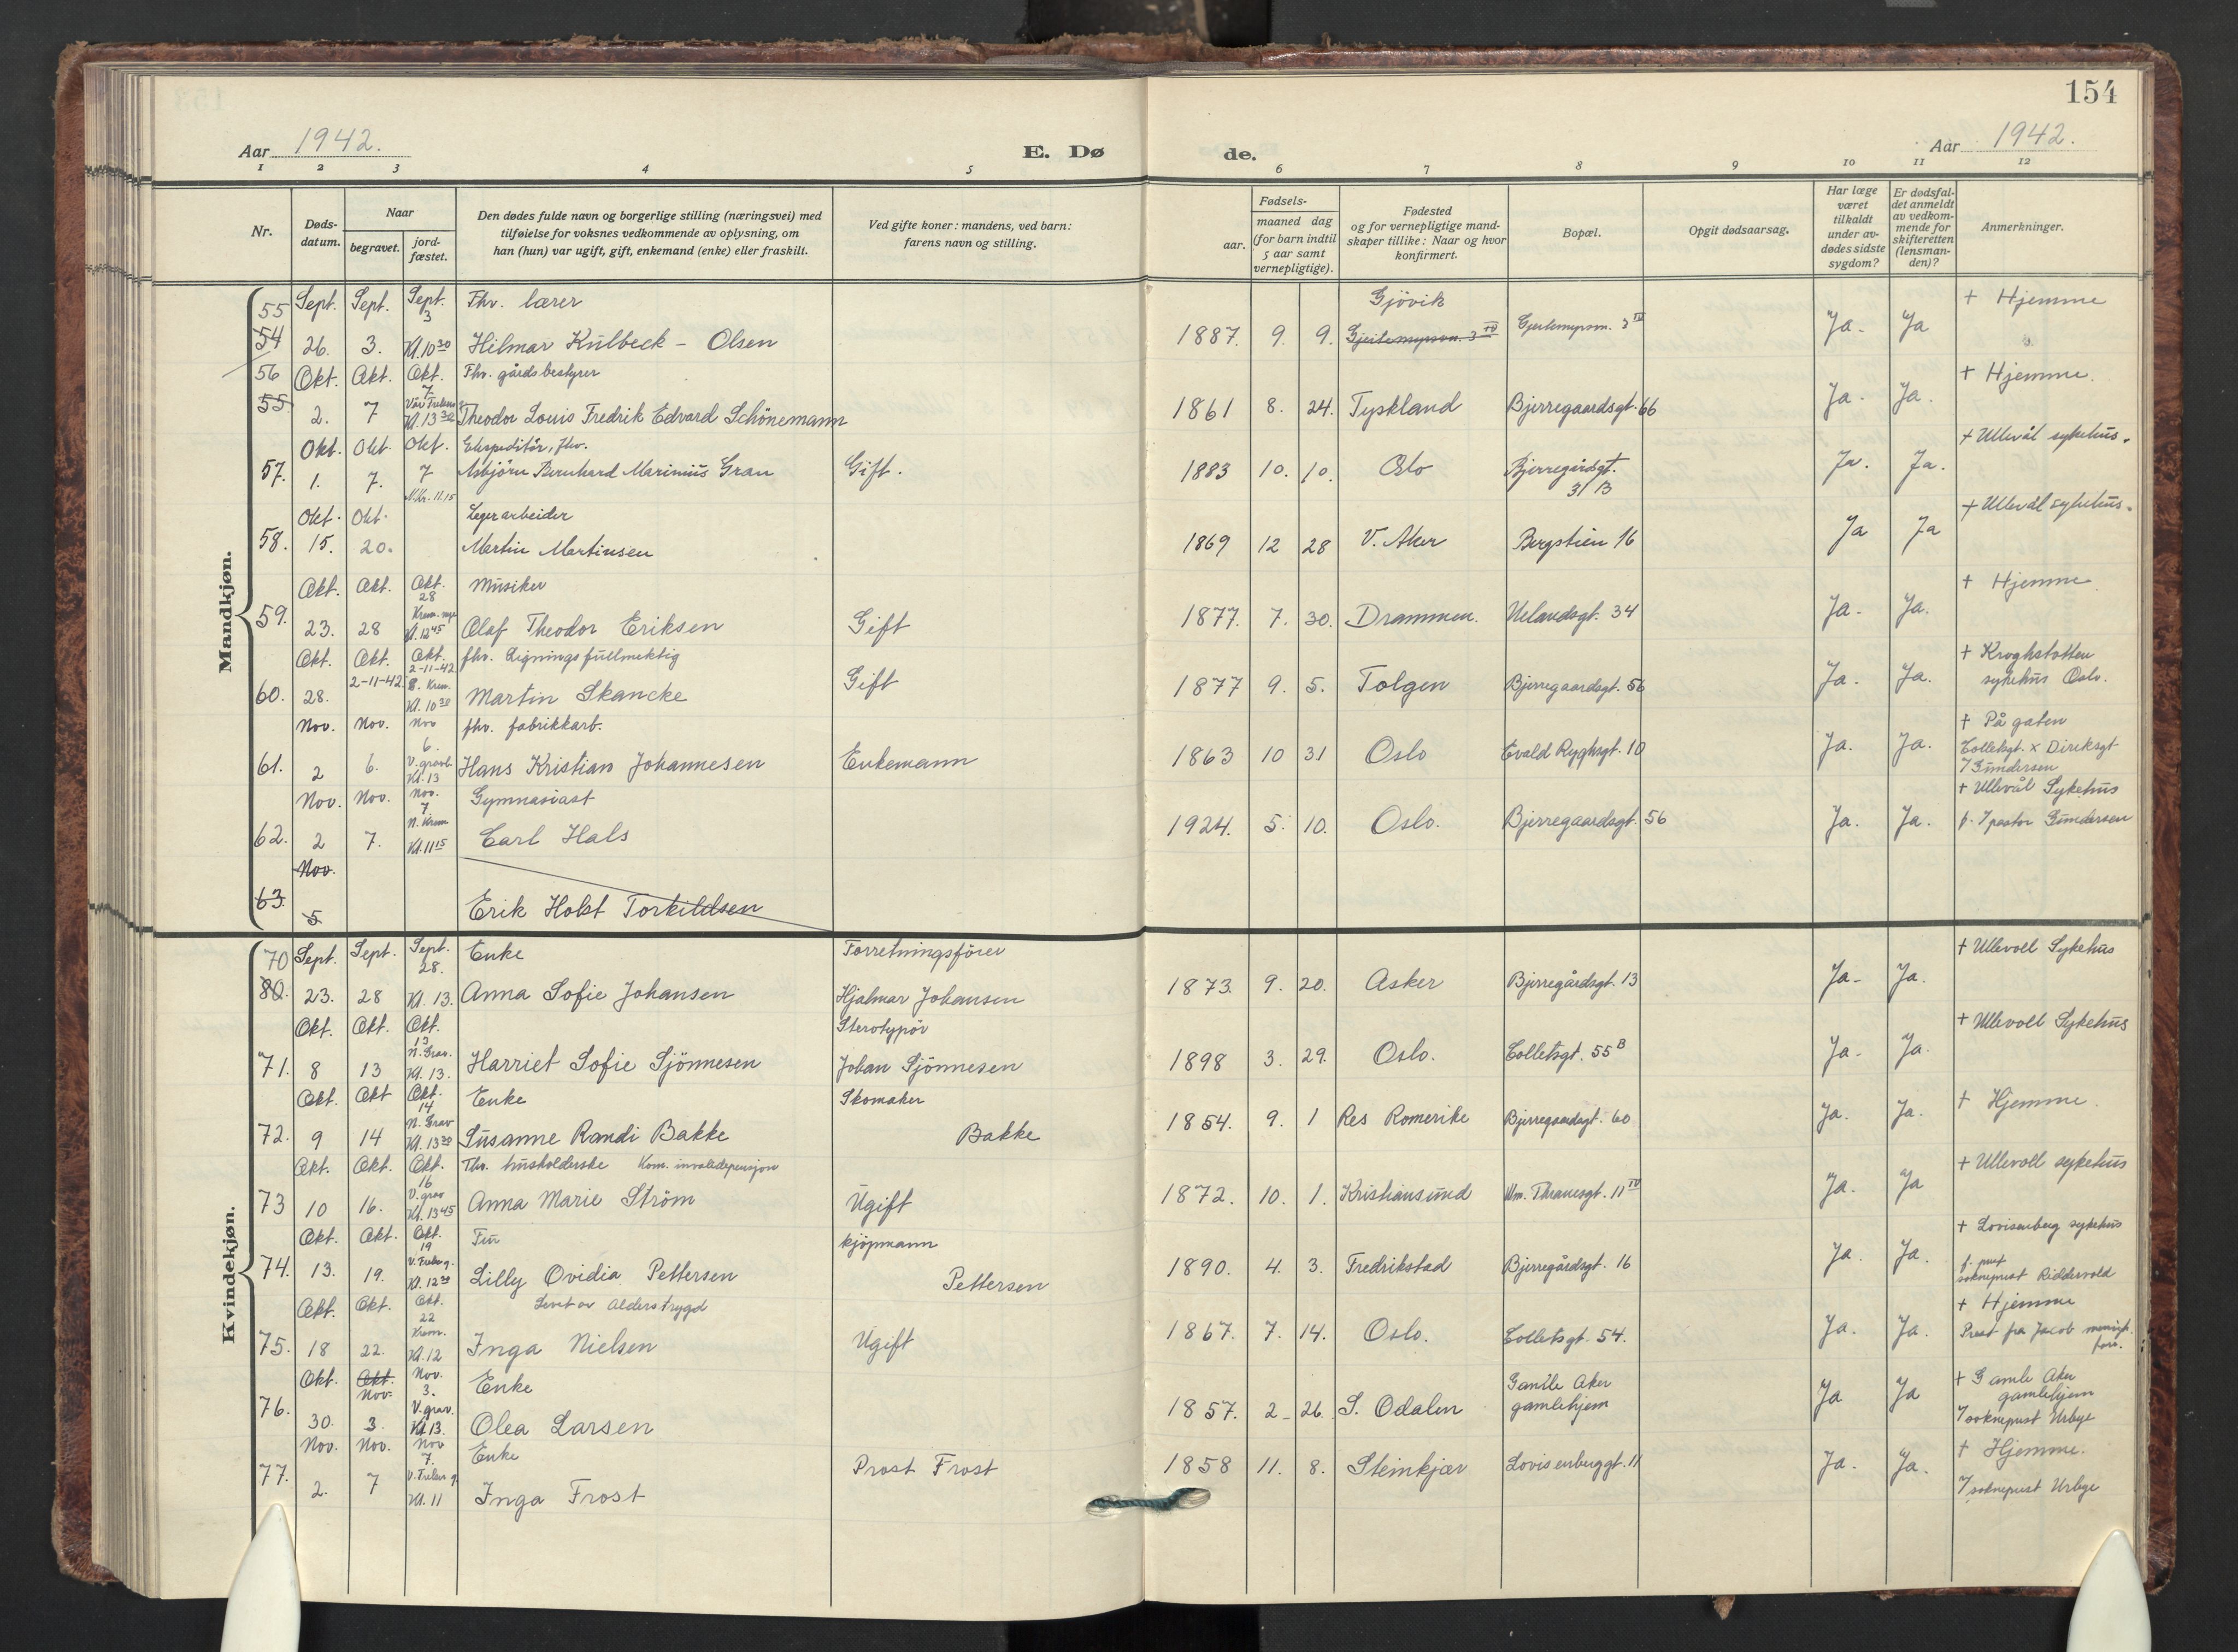 154
Aar 1942.
E. Dø
de.
Aar 1942.
1 2 3 4 5 6 7 8 9 10 11 12
Nr.
Døds-
datum.
Naar
begravet.
jord-
fæstet.
Den dødes fulde navn og borgerlige stilling (næringsvei) med
tilføielse for voksnes vedkommende av oplysning, om
han (hun) var ugift, gift, enkemand (enke) eller fraskilt.
Ved gifte koner: mandens, ved barn:
farens navn og stilling.
Fødsels-
aar.
maaned dag
(for barn indtil
5 aar samt
vernepligtige).
Fødested
og for vernepligtige mand-
skaper tillike: Naar og hvor
konfirmert.
Bopæl.
Opgit dødsaarsag.
Har læge
været
tilkaldt
under av-
dødes sidste
sygdom?
Er dødsfal-
det anmeldt
av vedkom-
mende for
skifteretten
(lensman-
den)?
Anmerkninger.
Mandkjøn.
55 Sept. Sept. Sept. 3 Fhv. lærer Gjövik + Hjemme
54 26. 3. Kl. 10 30 Hilmar Kulbeck - Olsen 1887. 9. 9. Gjeitemyrsvn. 3 IV Gjeitemyrsvn. 3 IV Ja. Ja
56 Okt. Okt. Okt. 7 Fhv. gårdsbestyrer + Hjemme.
55. 2. 7 Kl. 13 30 Theodor Louis Fredrik Edvard Schönemann 1861 8. 24. Tyskland Bjerregaardsgt. 66 Ja. Ja.
Okt. Okt. Okt. Ekspeditör, fhv. + Ullevål sykehus.
57. 1. 7. 7 Asbjörn Bernhard Marinius Gran Gift. 1883 10. 10. Oslo Bjerregårdsgt. Ja. Ja.
N.Kr. 11.15 31 B
Okt. Okt. Lagerarbeider + Ullevål sykehus.
58. 15. 20. Martin Martinsen 1869 12 28 V. Aker Bergstien 16 Ja Ja
Okt. Okt. Okt. 28 Musiker + Hjemme
59. 23. 28 Krem. nye Kl. 12 45 Olaf Theodor Eriksen Gift 1877. 7. 30. Drammen. Uelandsgt. 34 Ja. Ja.
Okt. Okt. Okt. fhv. Ligningsfullmektig + Kroghstötten
2-11-42 2-11-42 sykehus Oslo.
60. 28. Krem. Kl. 10 30 Martin Skancke Gift 1877 9. 5. Tolgen Bjerregaardsgt. 56 Ja. Ja.
Nov. Nov. Nov 6. fhv. fabrikkarb. + På gaten
61. 2 6. Kl. 13 Hans Kristian Johannesen Enkemann 1863 10 31 Oslo Evald Ryghsgt. 10 Ja. Ja. Colletsgt. x Diriksgt
Gundersen
Nov. Nov. Nov. 7 Gymnasiast + Ullevål Sykehus
62. 2 7. N. Krem Kl. 11 15 Carl Hals 1924. 5. 10. Oslo. Bjerregaardsgt. 56 Ja. Ja. pastor Gundersen
Nov.
63. 5 Erik Holst Torkildsen
Kvindekjøn.
70 Sept. Sept. Sept. 28. Enke Forretningsförer + Ullevoll Sykehus
80. 23. 28 Kl. 13. Anna Sofie Johansen Hjalmar Johansen 1873. 9. 20. Asker Bjerregårdsgt. 13 Ja- Ja.
Okt. Okt. Okt. 13 Sterotypör + Ullevoll Sykehus
71. 8 13 N. Grav. Kl. 13. Harriet Sofie Sjönnesen Johan Sjönnesen 1898 3. 29. Oslo. Colletsgt. 55 B Ja. Ja.
Okt. Okt Okt. 14 Enke Skomaker + Hjemme.
72. 9 14 N. Grav Kl. 13 30 Susanne Randi Bakke Bakke 1854. 9. 1 Res Romerike Bjerregaardsgt. 60 Ja. Ja.
Okt. Okt. Okt. 16 Fhv. husholderske Kom. invalidepensjon + Ullevoll sykehus
73 10 16. V. grav Kl. 13 45 Anna Marie Ström Ugift 1872. 10. 1. Kristiansund Wm. Thranesgt. 11 IV Ja. Ja
Okt. Okt. Okt. 19 Fru kjöpmann + Lovisenberg sykehus
74. 13. 19. Kl. 12 30 Lilly Ovidia Pettersen Pettersen 1890. 4. 3. Fredrikstad Bjerregårdsgt. 16 Ja. Ja. sokneprest Riddervold
Okt. Okt. Okt. 22 Levet av Alderstrygd + Hjemme
75. 18 22. Krem. Kl. 12 Inga Nielsen Ugift 1867. 7. 14. Oslo. Colletsgt. 54. Ja. Ja. Prest fra Jacob menigh.
Okt. Okt. Nov. Nov. 3. Enke Gamle Aker + Gamle Aker
gamlehjem
76. 30. 3. V. grav. Kl. 13. Olea Larsen 1857. 2 - 26. S. Odalen gamlehjem Ja Ja sokneprest Urbye
Nov. Nov. Nov 7. Enke + Hjemme.
77. 2. 7 Kl. 11 Inga Frost Prost Frost 1858 11. 8. Steinkjær Lovisenberggt. 11 Ja. Ja.
sokneprest Urbye